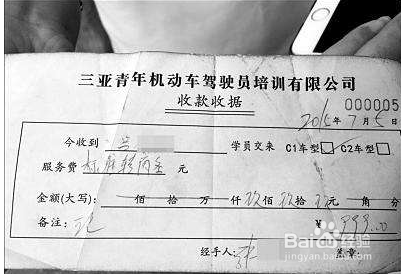 三亚青年机动车驾驶员培训有限公司
收款收据
000005
2015年7月5日
今收到 学员交来 C1车型 C2车型
服务费 元
金额(大写): 佰 拾 万 仟 玖佰 玖拾 元 角 分
备注: ¥ 999.00
经手人: 盖章:
Baidu经验
jingyan.baidu.com